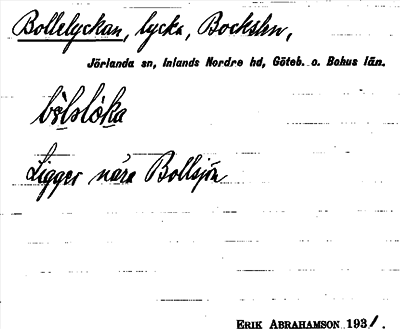 Bollelyckan, lycka, Bockshn,
Jörlanda sn, Inlands Nordre hd, Göteb. o. Bohus län.
bòlsloka
Ligger nära Bollsjön
ERIK ABRAHAMSON 1931.